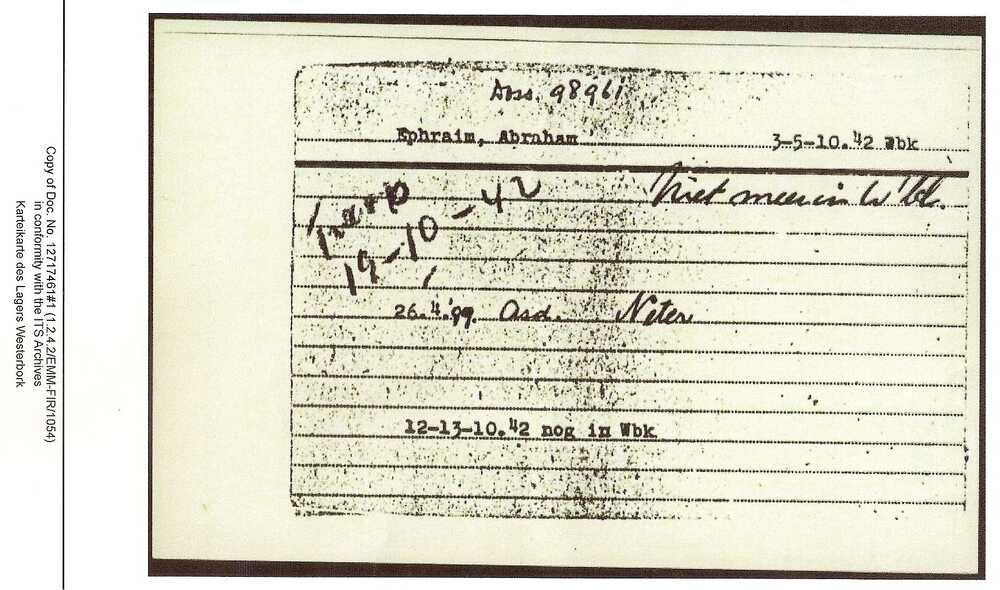 Copy of Doc. No. 12717461#1 (1.2.4.2/EMM-FIR/1054)
in conformity with the ITS Archives
Karteikarte des Lagers Westerbork
Doss. 98961
Ephraim, Abraham 3-5-10.42 Wbk
Niet meer in W'bk.
Transp
19-10-42
26.4.'99. Asd. Neter
12-13-10.42 nog in Wbk